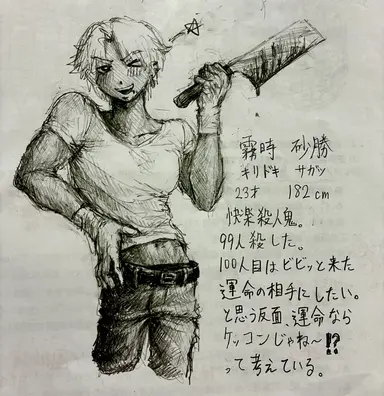 霧時 砂勝
キリドキ サガツ
23才 182cm
快楽殺人鬼。
99人殺した。
100人目はビビッと来た
運命の相手にしたい。
と思う反面、運命なら
ケッコンじゃね〜!?
って考えている。